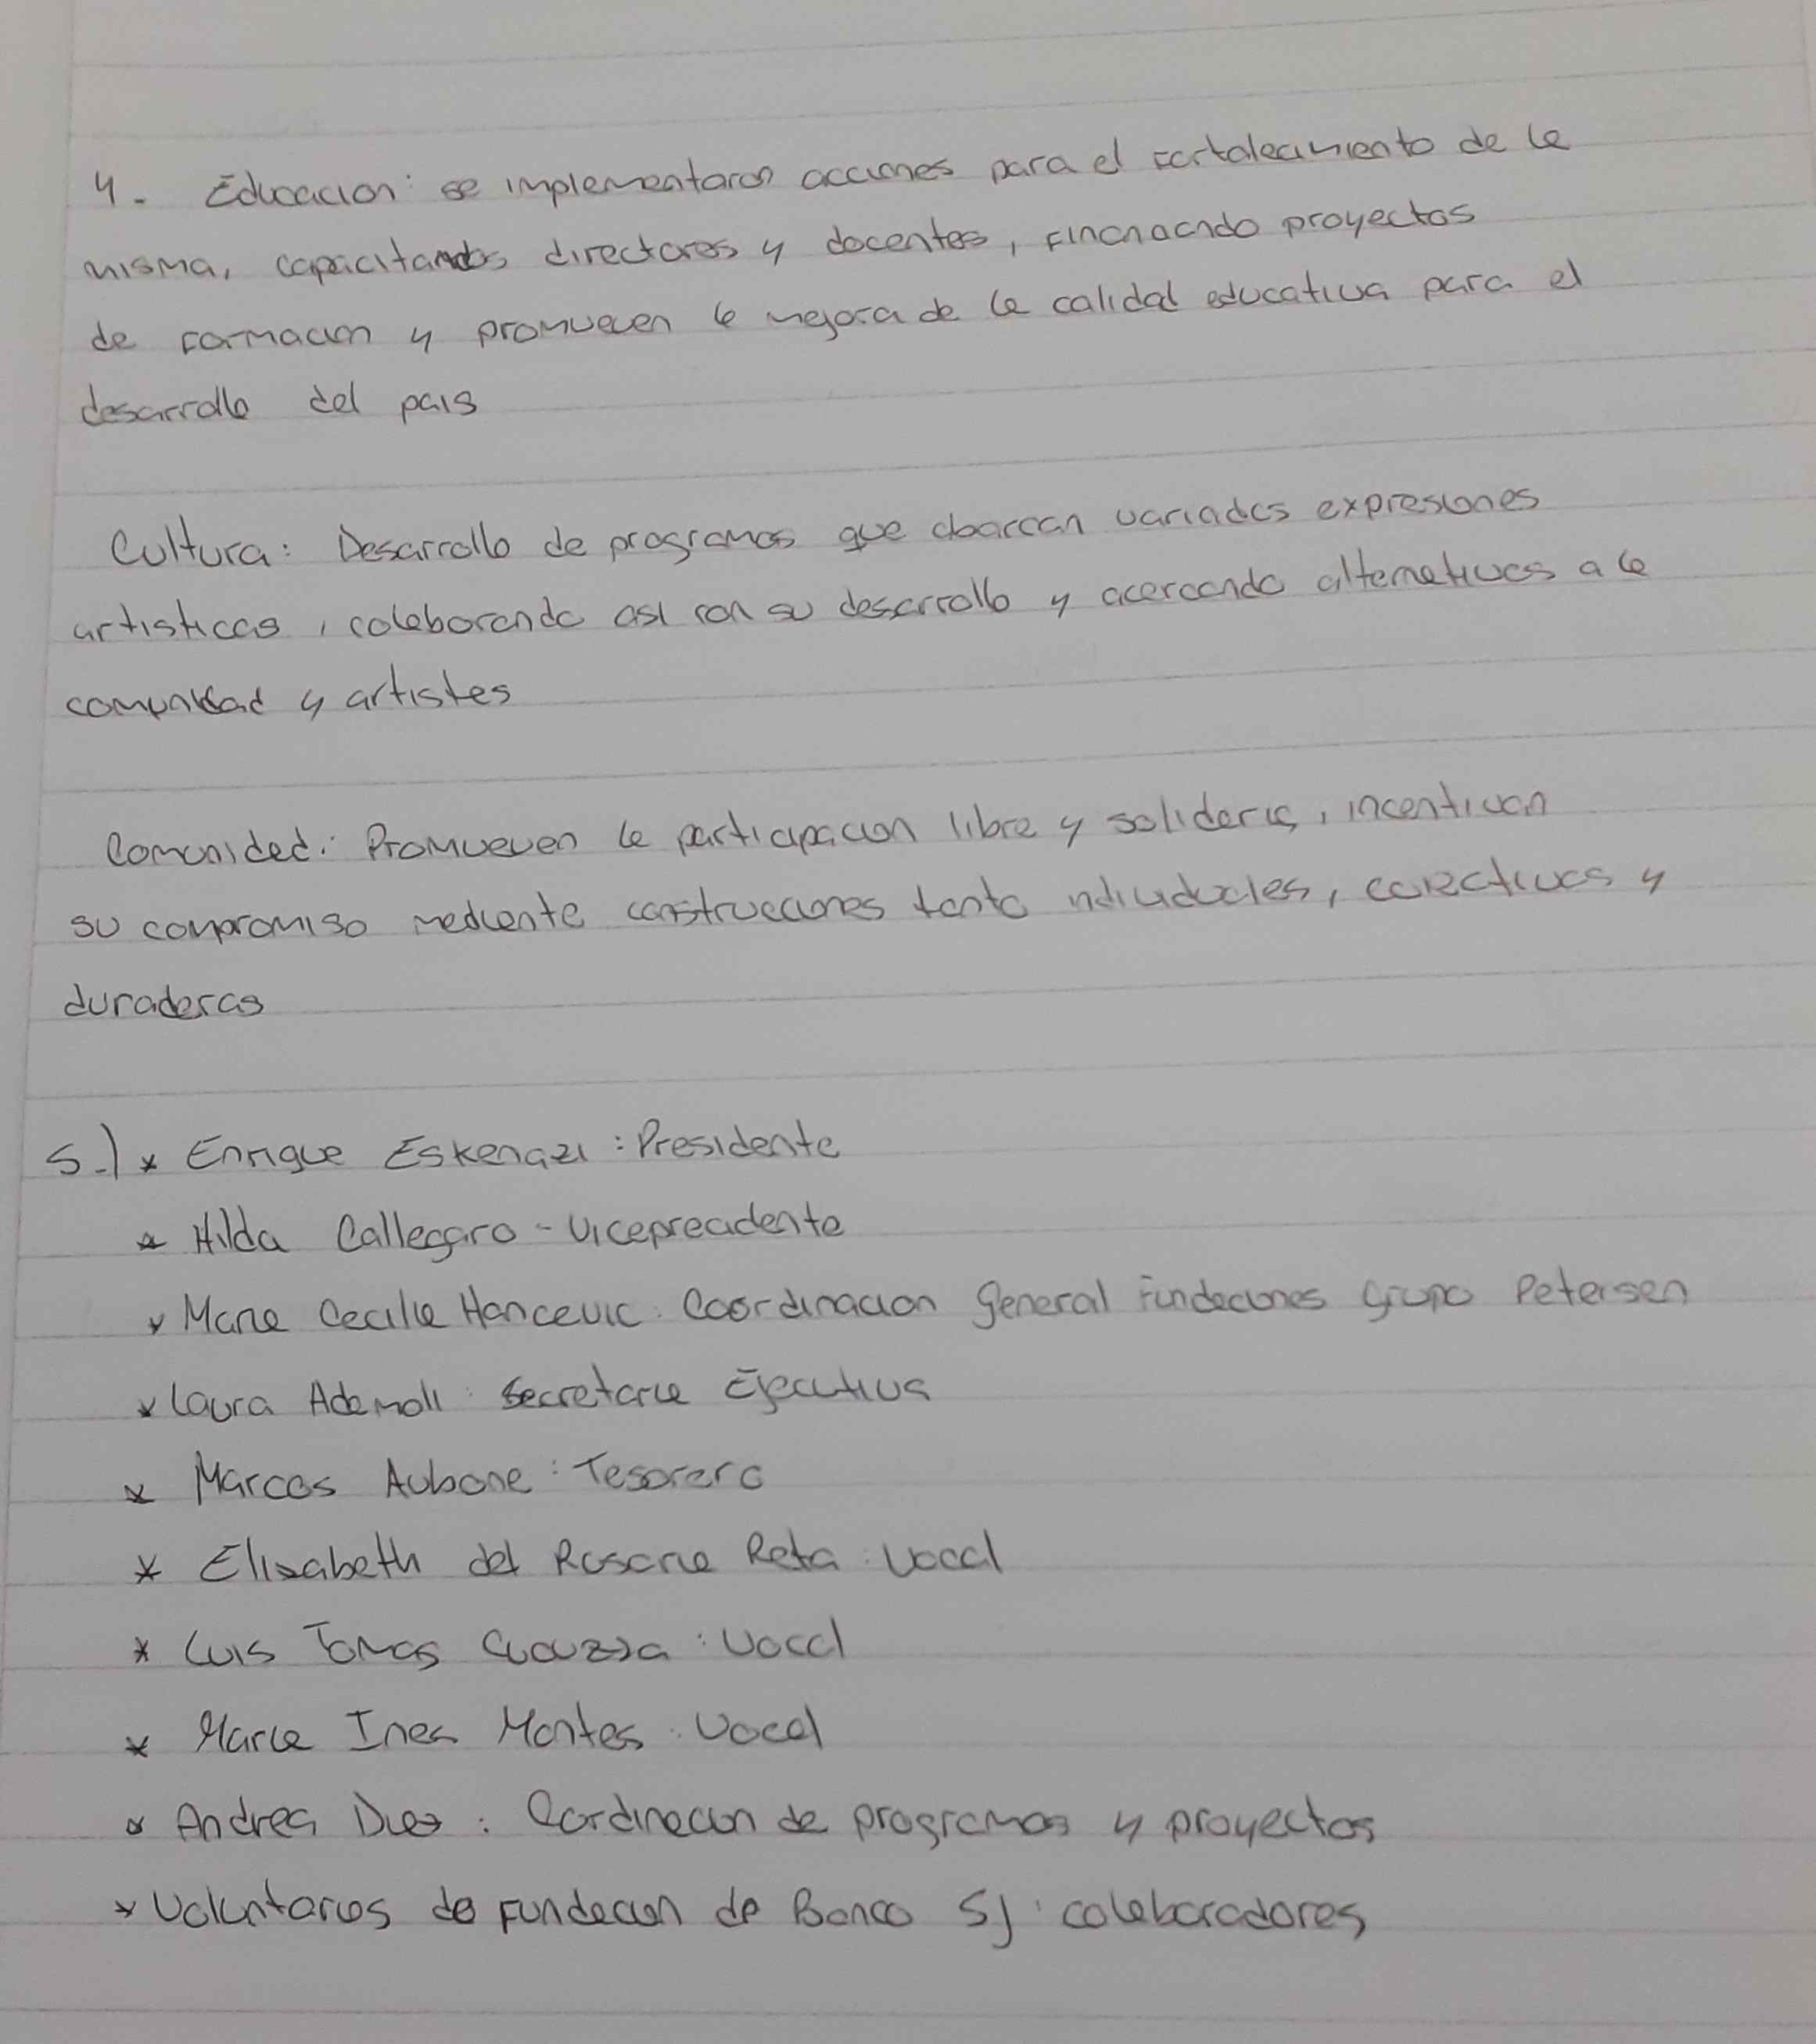 4- Educacion: se implementaron acciones para el fortalecimiento de la
misma, capacitando directores y docentes, financiando proyectos
de formacion y promueven la mejora de la calidad educativa para el
desarrollo del pais
Cultura: Desarrollo de programas que abarcan variadas expresiones
artisticas, colaborando asi con su desarrollo y acercando alternativas a la
comunidad y artistas
Comunidad: Promueven la participacion libre y solidaria, incentivan
su compromiso mediante construcciones tanto individuales, colectivas y
duraderas
5-) * Enrique Eskenazi : Presidente
* Hilda Callegaro - Vicepresidente
* Maria Cecilia Hancevic : Coordinacion general Fundaciones Grupo Petersen
* Laura Adamoli : Secretaria Ejecutiva
* Marcos Aubone : Tesorero
* Elisabeth del Rosario Reta : Vocal
* Luis Tomas : Vocal
* Maria Ines Montes : Vocal
* Andrea Diez : Cordinacion de programas y proyectos
* Voluntarios de Fundacion de Banco SJ : colaboradores